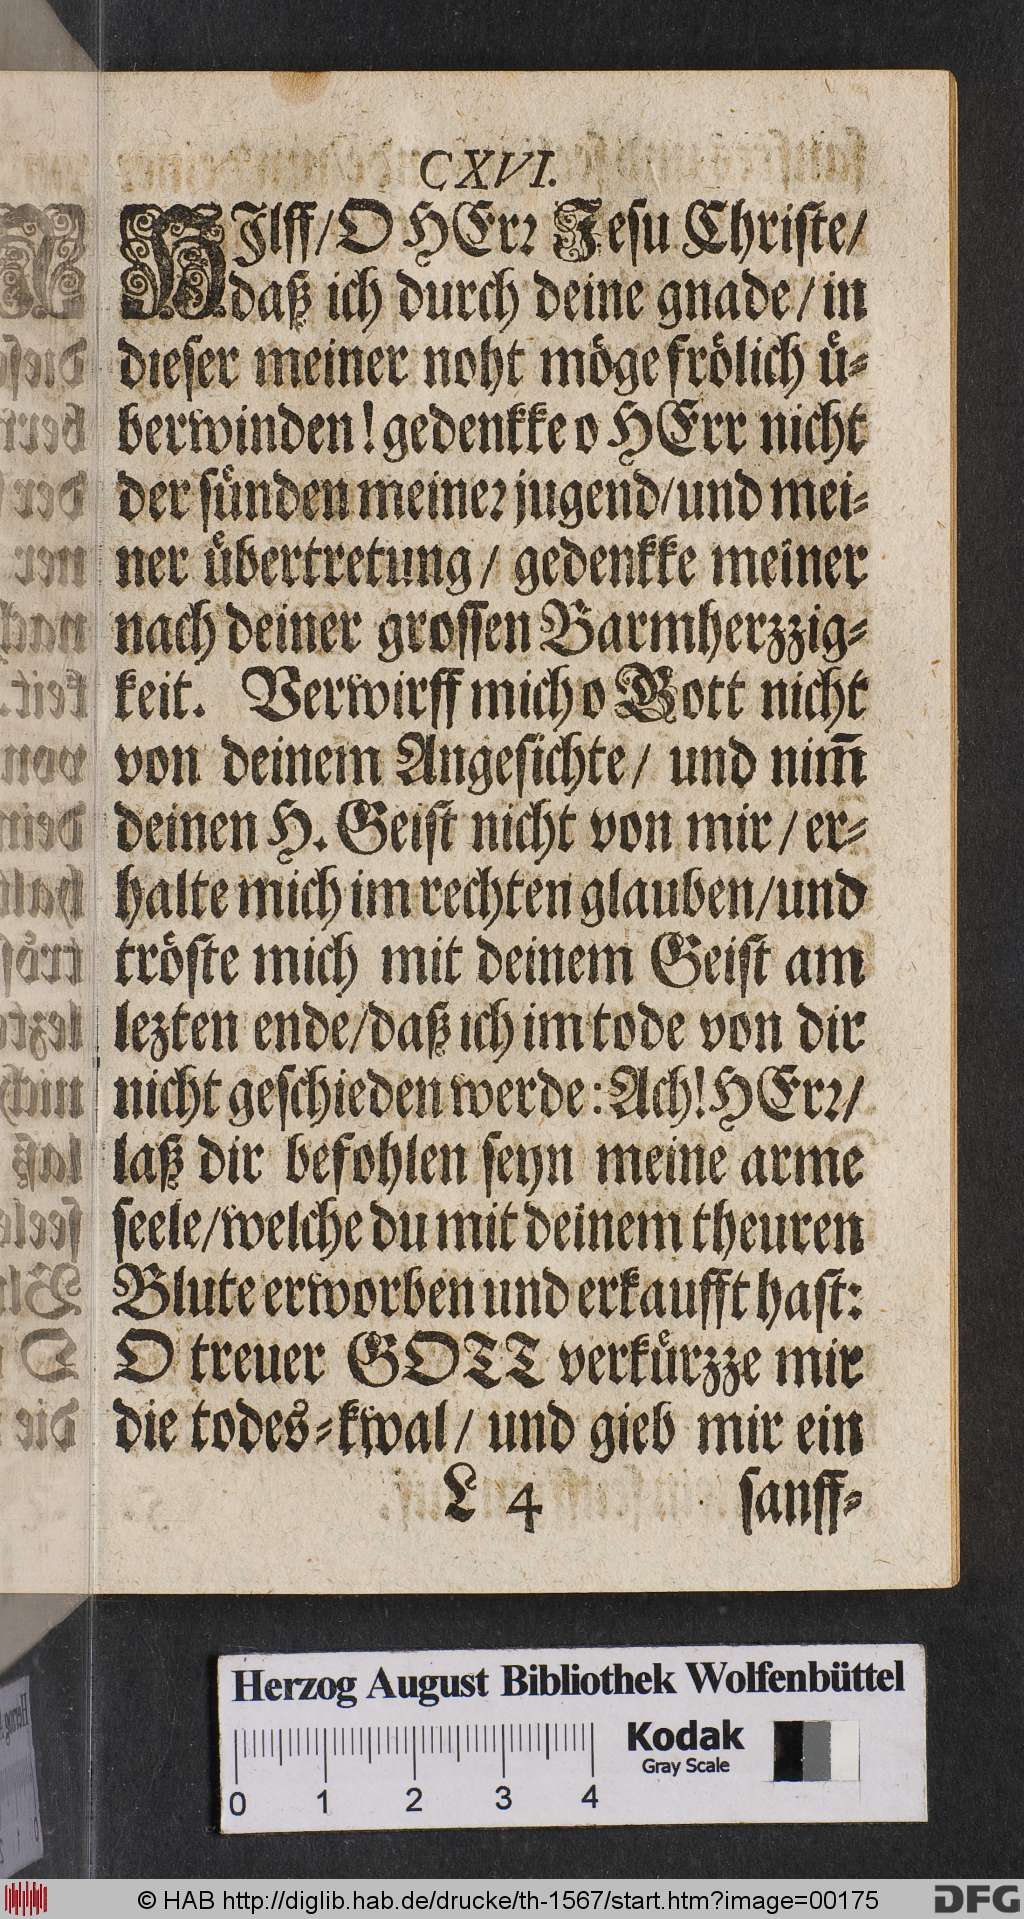 CXVI.
HIlff/ O HErr Jesu Christe/
daß ich durch deine gnade/ in
dieser meiner noht möge frölich ü-
berwinden! gedenkke o HErr nicht
der sünden meiner jugend/ und mei-
ner übertretung/ gedenkke meiner
nach deiner grossen Barmherzzig-
keit. Verwirff mich o Gott nicht
von deinem Angesichte/ und nim̄
deinen H. Geist nicht von mir/ er-
halte mich im rechten glauben/ und
tröste mich mit deinem Geist am
lezten ende/ daß ich im tode von dir
nicht geschieden werde: Ach! HErr/
laß dir befohlen seyn meine arme
seele/ welche du mit deinem theuren
Blute erworben und erkaufft hast:
O treuer GOTT verkürzze mir
die todes-kwal/ und gieb mir ein
L 4 sanff-
Herzog August Bibliothek Wolfenbüttel
Kodak
Gray Scale
0 1 2 3 4
© HAB http://diglib.hab.de/drucke/th-1567/start.htm?image=00175
DFG